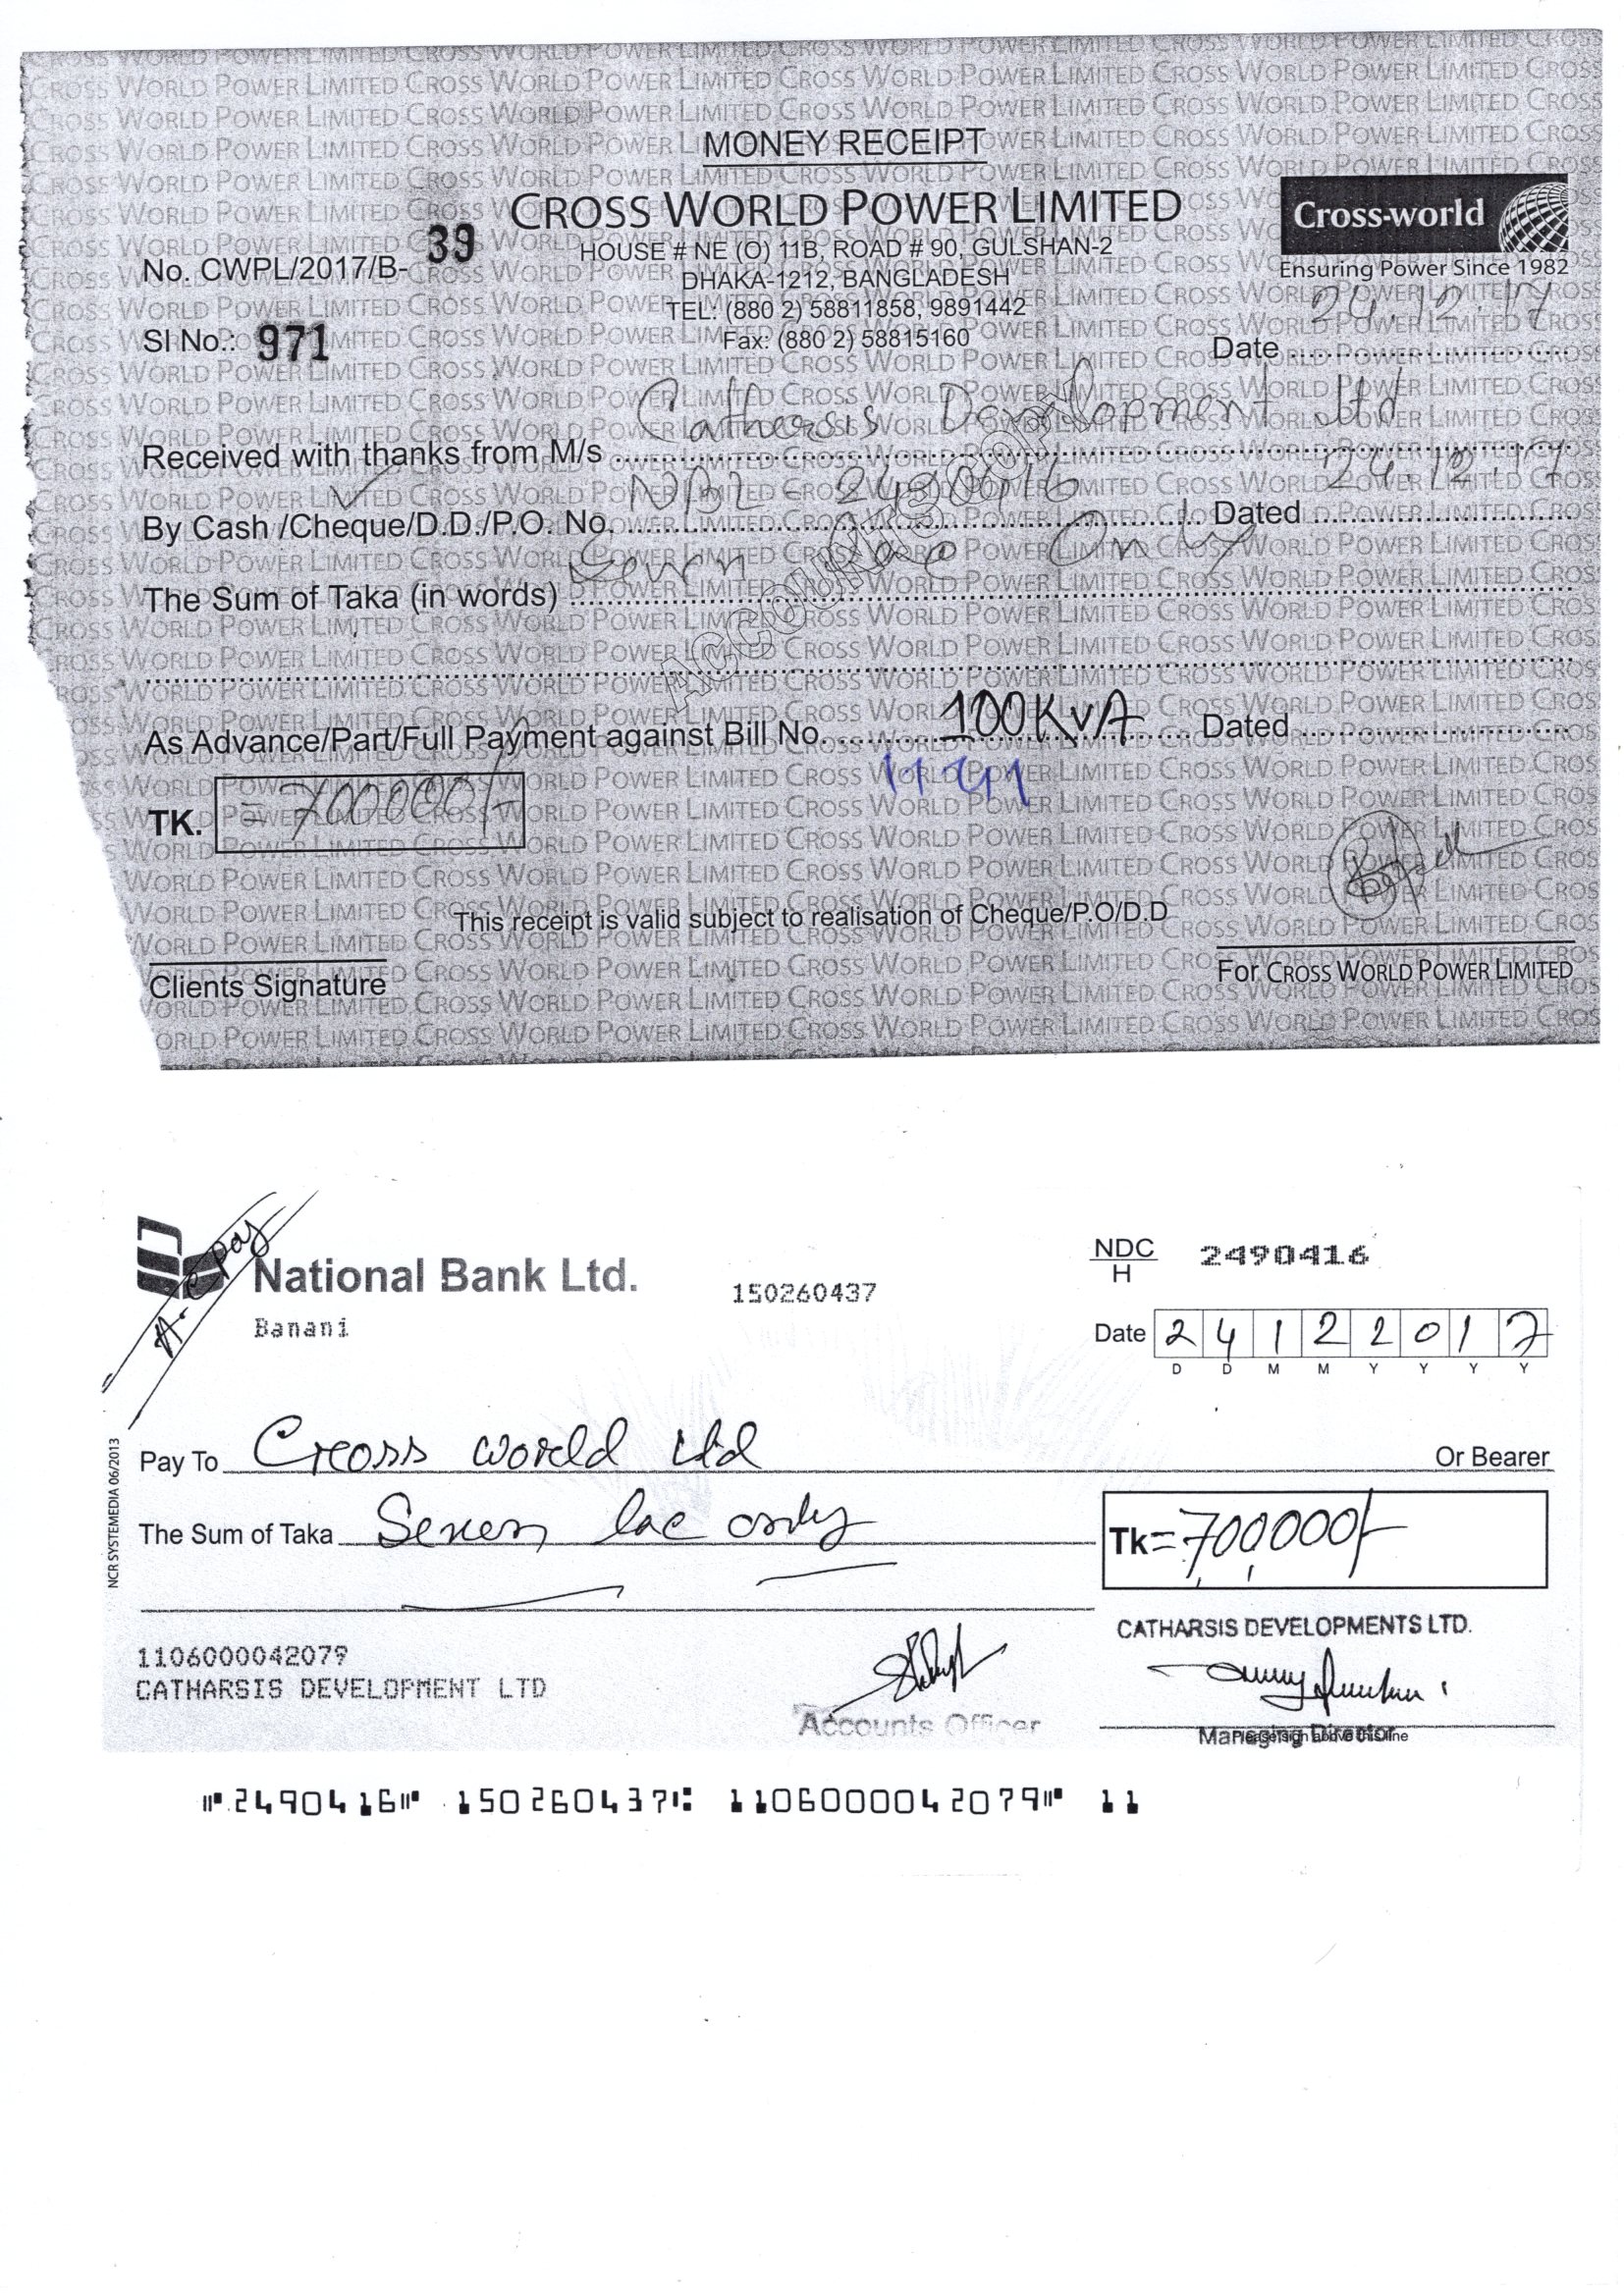 MONEY RECEIPT
CROSS WORLD POWER LIMITED
Cross-world
Ensuring Power Since 1982
HOUSE # NE (O) 11B, ROAD # 90, GULSHAN-2
No. CWPL/2017/B- 39
DHAKA-1212, BANGLADESH
TEL: (880 2) 58811858, 9891442
Sl No.: 971
Fax: (880 2) 58815160
Date 24.12.17
Received with thanks from M/s Catharsis Development Ltd
By Cash /Cheque/D.D./P.O. No. NBL - 2490416 Dated 24.12.17
The Sum of Taka (in words) Seven Only
ACCOUNTS COPY
As Advance/Part/Full Payment against Bill No. 100KVA Dated
TK. =700000/-
This receipt is valid subject to realisation of Cheque/P.O/D.D
Clients Signature
For CROSS WORLD POWER LIMITED
National Bank Ltd.
Banani
150260437
NDC/H 2490416
Date 24122017
D D M M Y Y Y Y
Pay To Cross world Ltd Or Bearer
The Sum of Taka Seven lac only
Tk=700,000/-
NCR SYSTEMEDIA 06/2013
CATHARSIS DEVELOPMENTS LTD.
1106000042079
CATHARSIS DEVELOPMENT LTD
Accounts Officer
Managing Director
2490416 150260437 1106000042079 11